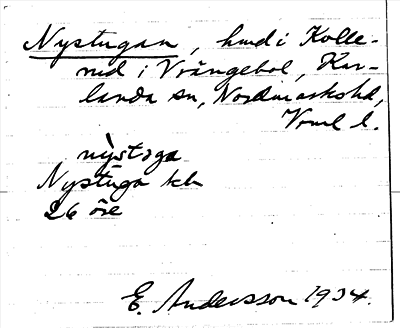 Nystugan, hmd i Kolle-
rud i Vrångebol, Kar-
landa sn, Nordmarkshd,
Vrml l.
nỳstoga
Nystuga kch
26 öre
E. Andersson 1934.